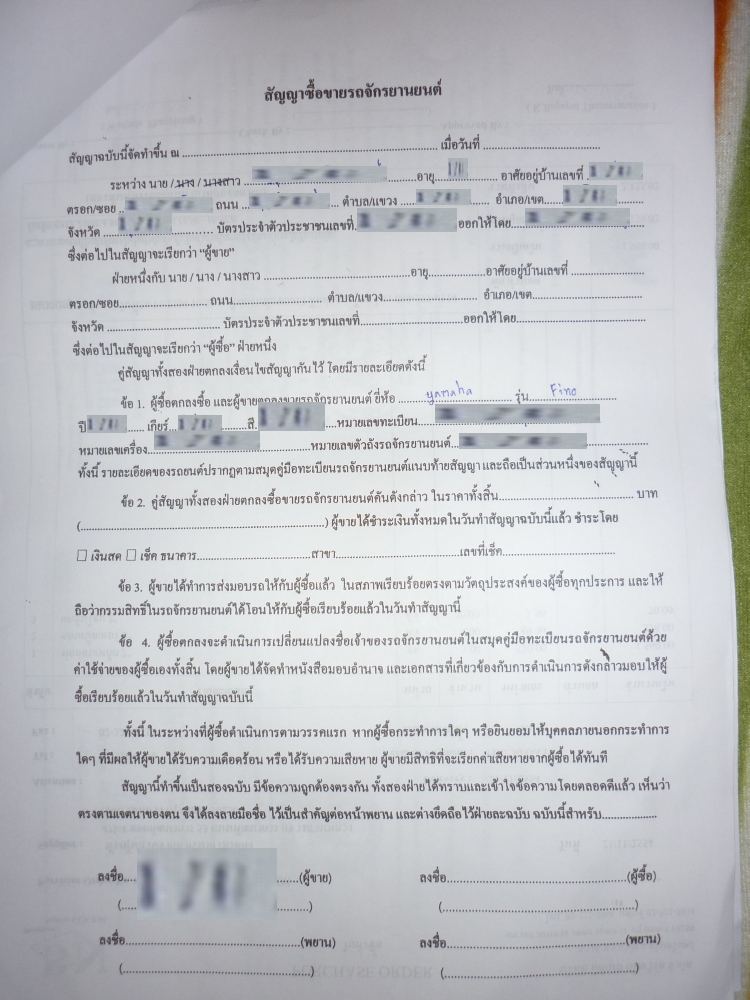 สัญญาซื้อขายรถจักรยานยนต์
สัญญาฉบับนี้จัดทำขึ้น ณ ........................................ เมื่อวันที่ ................................
ระหว่าง นาย / นาง / นางสาว ........................................อายุ.................... อาศัยอยู่บ้านเลขที่ ....................
ตรอก/ซอย .................... ถนน .................... ตำบล/แขวง .................... อำเภอ/เขต....................
จังหวัด .................... บัตรประจำตัวประชาชนเลขที่....................ออกให้โดย....................
ซึ่งต่อไปในสัญญาจะเรียกว่า “ผู้ขาย”
ฝ่ายหนึ่งกับ นาย / นาง / นางสาว ........................................อายุ....................อาศัยอยู่บ้านเลขที่ ....................
ตรอก/ซอย.................... ถนน.................... ตำบล/แขวง.................... อำเภอ/เขต....................
จังหวัด .................... บัตรประจำตัวประชาชนเลขที่....................ออกให้โดย....................
ซึ่งต่อไปในสัญญาจะเรียกว่า “ผู้ซื้อ” ฝ่ายหนึ่ง
คู่สัญญาทั้งสองฝ่ายตกลงเงื่อนไขสัญญากันไว้ โดยมีรายละเอียดดังนี้
ข้อ 1. ผู้ซื้อตกลงซื้อ และผู้ขายตกลงขายรถจักรยานยนต์ ยี่ห้อ yamaha รุ่น Fino
ปี.................... เกียร์....................สี....................หมายเลขทะเบียน....................
หมายเลขเครื่อง....................หมายเลขตัวถังรถจักรยานยนต์....................
ทั้งนี้ รายละเอียดของรถยนต์ปรากฏตามสมุดคู่มือทะเบียนรถจักรยานยนต์แนบท้ายสัญญา และถือเป็นส่วนหนึ่งของสัญญานี้
ข้อ 2. คู่สัญญาทั้งสองฝ่ายตกลงซื้อขายรถจักรยานยนต์คันดังกล่าว ในราคาทั้งสิ้น.................... บาท
(........................................) ผู้ขายได้ชำระเงินทั้งหมดในวันทำสัญญาฉบับนี้แล้ว ชำระโดย
☐ เงินสด ☐ เช็ค ธนาคาร....................สาขา....................เลขที่เช็ค....................
ข้อ 3. ผู้ขายได้ทำการส่งมอบรถให้กับผู้ซื้อแล้ว ในสภาพเรียบร้อยตรงตามวัตถุประสงค์ของผู้ซื้อทุกประการ และให้
ถือว่ากรรมสิทธิ์ในรถจักรยานยนต์ได้โอนให้กับผู้ซื้อเรียบร้อยแล้วในวันทำสัญญานี้
ข้อ 4. ผู้ซื้อตกลงจะดำเนินการเปลี่ยนแปลงชื่อเจ้าของรถจักรยานยนต์ในสมุดคู่มือทะเบียนรถจักรยานยนต์ด้วย
ค่าใช้จ่ายของผู้ซื้อเองทั้งสิ้น โดยผู้ขายได้จัดทำหนังสือมอบอำนาจ และเอกสารที่เกี่ยวข้องกับการดำเนินการดังกล่าวมอบให้ผู้
ซื้อเรียบร้อยแล้วในวันทำสัญญาฉบับนี้
ทั้งนี้ ในระหว่างที่ผู้ซื้อดำเนินการตามวรรคแรก หากผู้ซื้อกระทำการใดๆ หรือยินยอมให้บุคคลภายนอกกระทำการ
ใดๆ ที่มีผลให้ผู้ขายได้รับความเดือดร้อน หรือได้รับความเสียหาย ผู้ขายมีสิทธิที่จะเรียกค่าเสียหายจากผู้ซื้อได้ทันที
สัญญานี้ทำขึ้นเป็นสองฉบับ มีข้อความถูกต้องตรงกัน ทั้งสองฝ่ายได้ทราบและเข้าใจข้อความโดยตลอดดีแล้ว เห็นว่า
ตรงตามเจตนาของตน จึงได้ลงลายมือชื่อ ไว้เป็นสำคัญต่อหน้าพยาน และต่างยึดถือไว้ฝ่ายละฉบับ ฉบับนี้สำหรับ....................
ลงชื่อ....................(ผู้ขาย) ลงชื่อ........................................(ผู้ซื้อ)
(....................) (........................................)
ลงชื่อ........................................(พยาน) ลงชื่อ........................................(พยาน)
(........................................) (........................................)